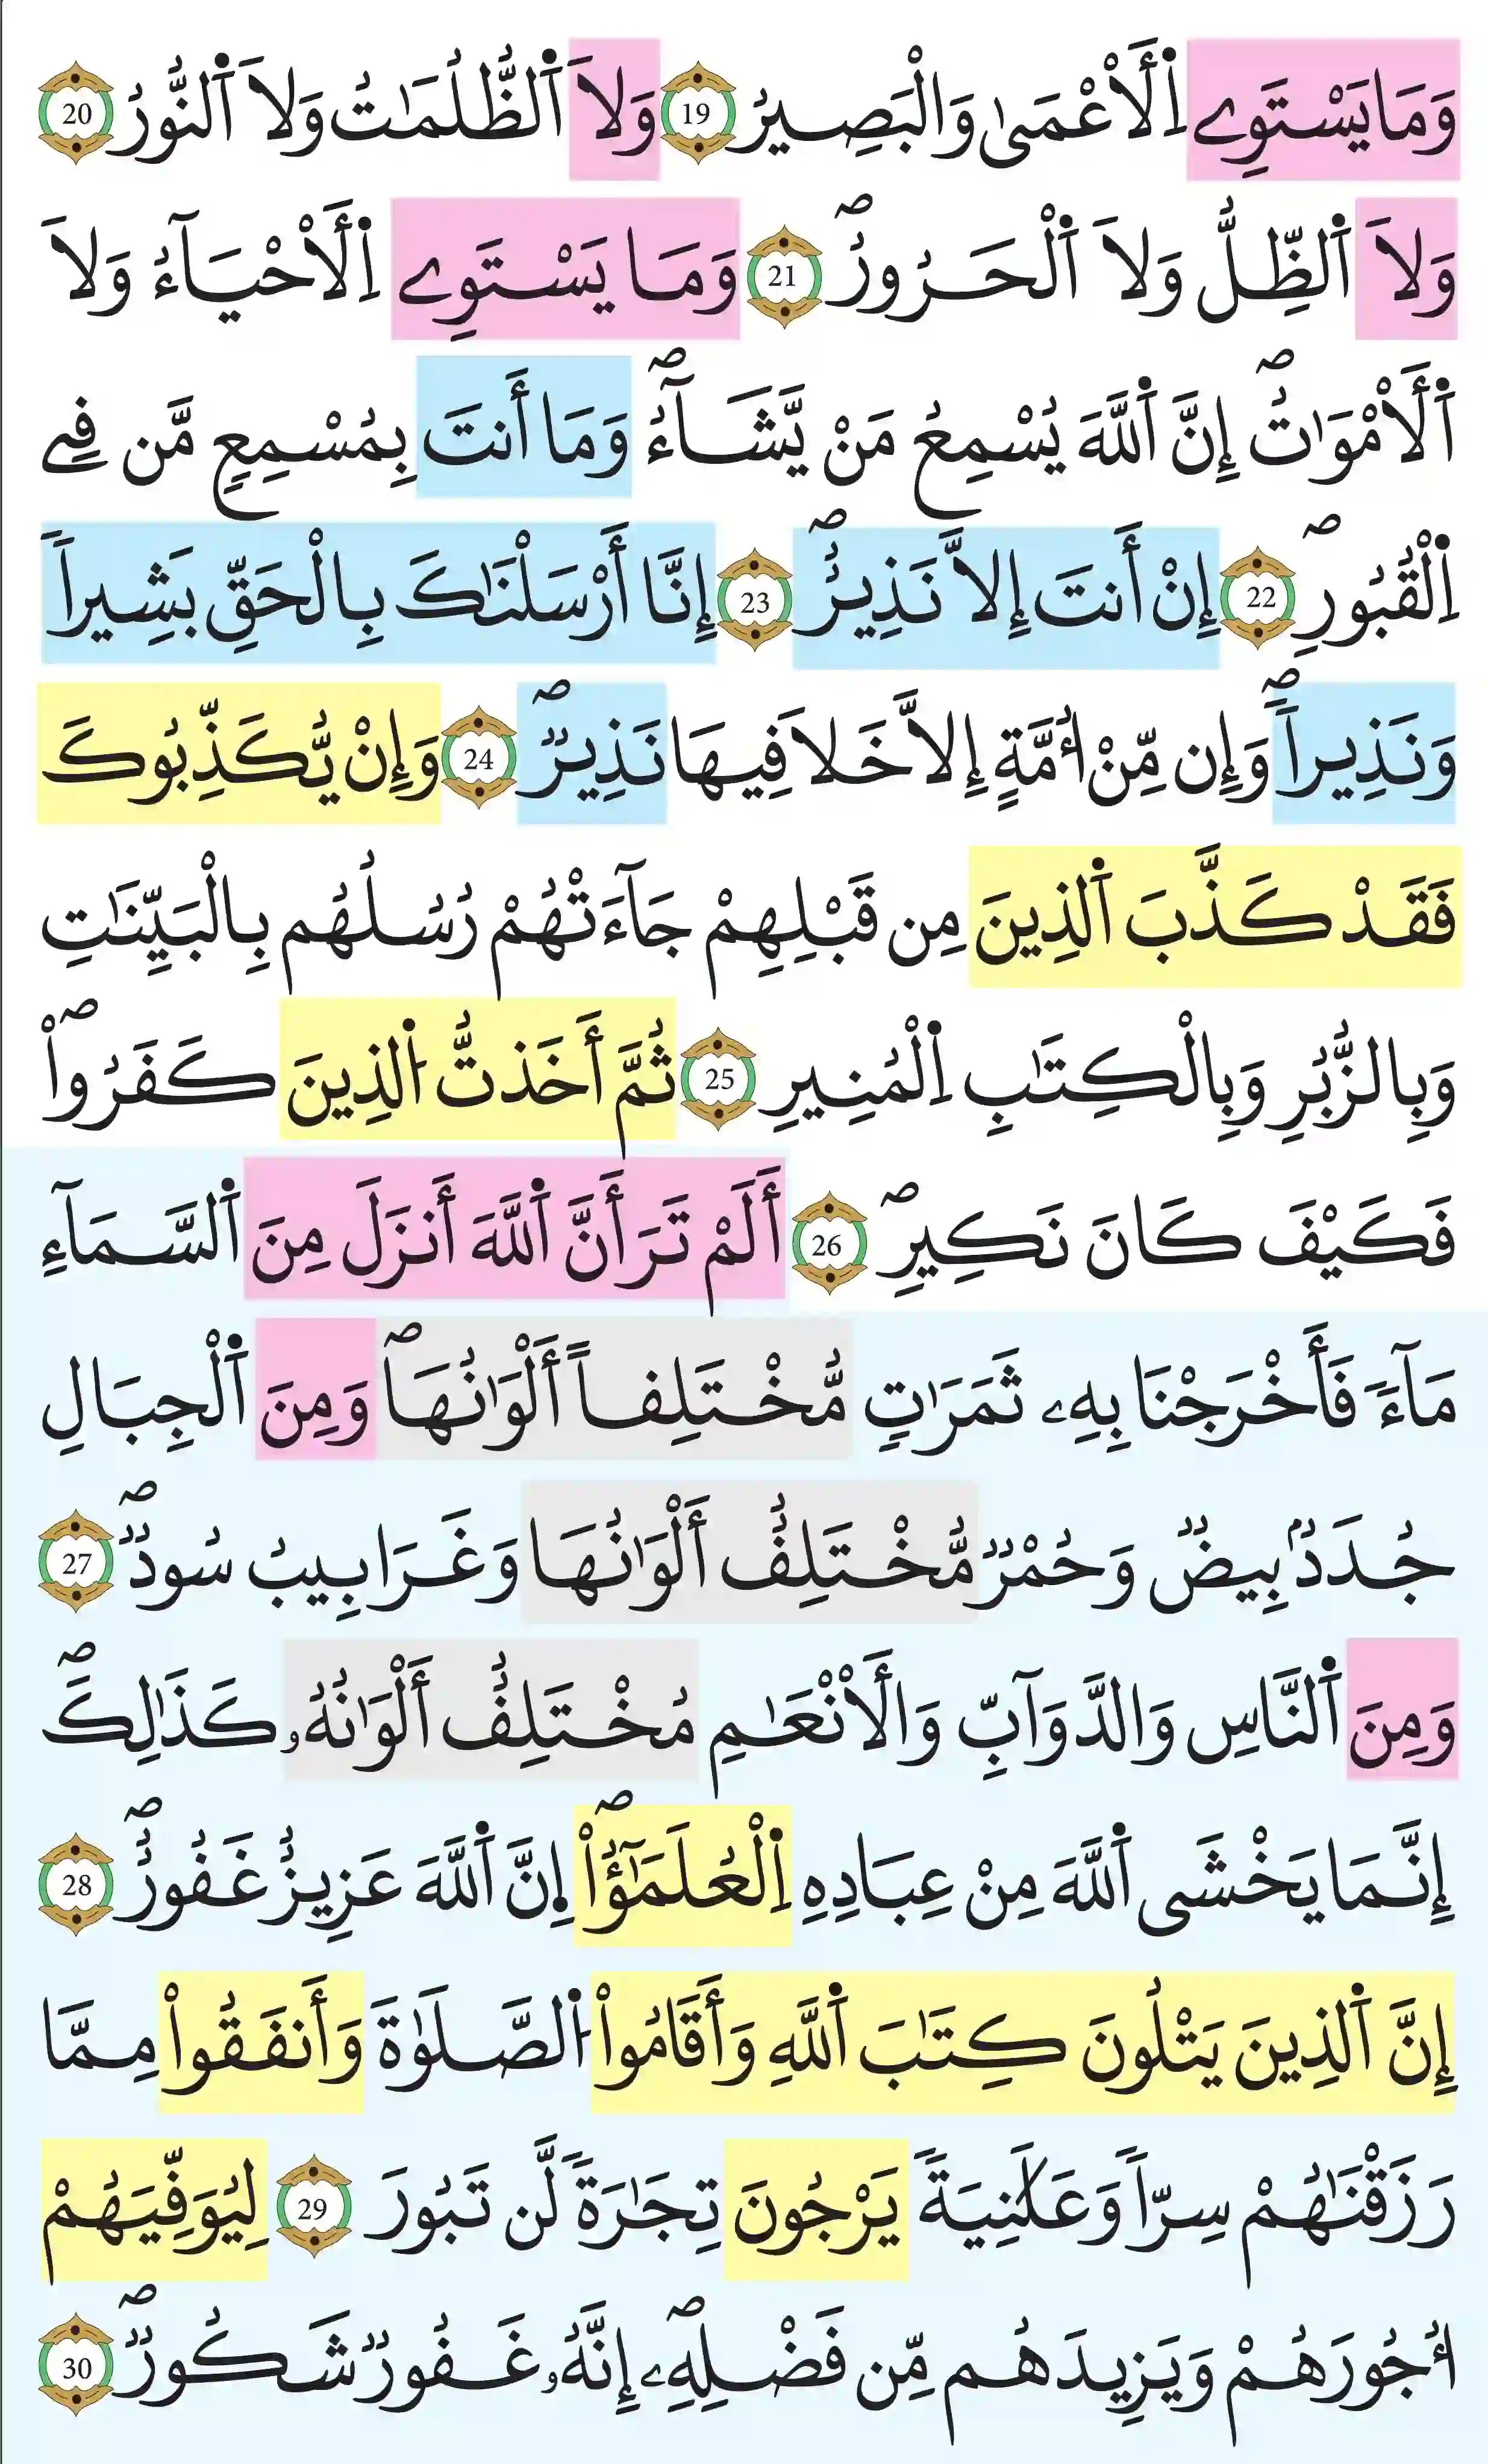 وَمَا يَسْتَوِے اِ۬لَاعْم۪ىٰ وَالْبَصِيرُ 19 وَلَا اَ۬لظُّلُمَٰتُ وَلَا اَ۬لنُّورُ 20
وَلَا اَ۬لظِّلُّ وَلَا اَ۬لْحَرُورُۖ 21 وَمَا يَسْتَوِے اِ۬لَاحْيَآءُ وَلَا
اَ۬لَامْوَٰتُۖ إِنَّ اَ۬للَّهَ يُسْمِعُ مَنْ يَّشَآءُۖ وَمَا أَنتَ بِمُسْمِعٍ مَّن فِے
اِ۬لْقُبُورِۖ 22 إِنْ أَنتَ إِلَّا نَذِيرٌۖ 23 إِنَّا أَرْسَلْنَٰكَ بِالْحَقِّ بَشِيراً
وَنَذِيراًۖ وَإِن مِّنُ ا۟مَّةٍ إِلَّا خَلَا فِيهَا نَذِيرٌۖ 24 وَإِنْ يُّكَذِّبُوكَ
فَقَدْ كَذَّبَ اَ۬لذِينَ مِن قَبْلِهِمْ جَآءَتْهُمْ رُسُلُهُم بِالْبَيِّنَٰتِ
وَبِالزُّبُرِ وَبِالْكِتَٰبِ اِ۬لْمُنِيرِ 25 ثُمَّ أَخَذتُّ اُ۬لذِينَ كَفَرُواْۖ
فَكَيْفَ كَانَ نَكِيرِۖ 26 أَلَمْ تَرَ أَنَّ اَ۬للَّهَ أَنزَلَ مِنَ اَ۬لسَّمَآءِ
مَآءً فَأَخْرَجْنَا بِهِۦ ثَمَرَٰتٍ مُّخْتَلِفاً أَلْوَٰنُهَاۖ وَمِنَ اَ۬لْجِبَالِ
جُدَدٌۢ بِيضٌ وَحُمْرٌ مُّخْتَلِفٌ أَلْوَٰنُهَا وَغَرَابِيبُ سُودٌۖ 27
وَمِنَ اَ۬لنَّاسِ وَالدَّوَآبِّ وَالَانْعَٰمِ مُخْتَلِفٌ أَلْوَٰنُهُۥ كَذَٰلِكَۖ
إِنَّمَا يَخْشَى اَ۬للَّهَ مِنْ عِبَادِهِ اِ۬لْعُلَمَٰٓؤُاْۖ اِنَّ اَ۬للَّهَ عَزِيزٌ غَفُورٌۖ 28
إِنَّ اَ۬لذِينَ يَتْلُونَ كِتَٰبَ اَ۬للَّهِ وَأَقَامُواْ اُ۬لصَّلَوٰةَ وَأَنفَقُواْ مِمَّا
رَزَقْنَٰهُمْ سِرّاً وَعَلَٰنِيَةً يَرْجُونَ تِجَٰرَةً لَّن تَبُورَ 29 لِيُوَفِّيَهُمْ
أُجُورَهُمْ وَيَزِيدَهُم مِّن فَضْلِهِۦۖ إِنَّهُۥ غَفُورٌ شَكُورٌۖ 30